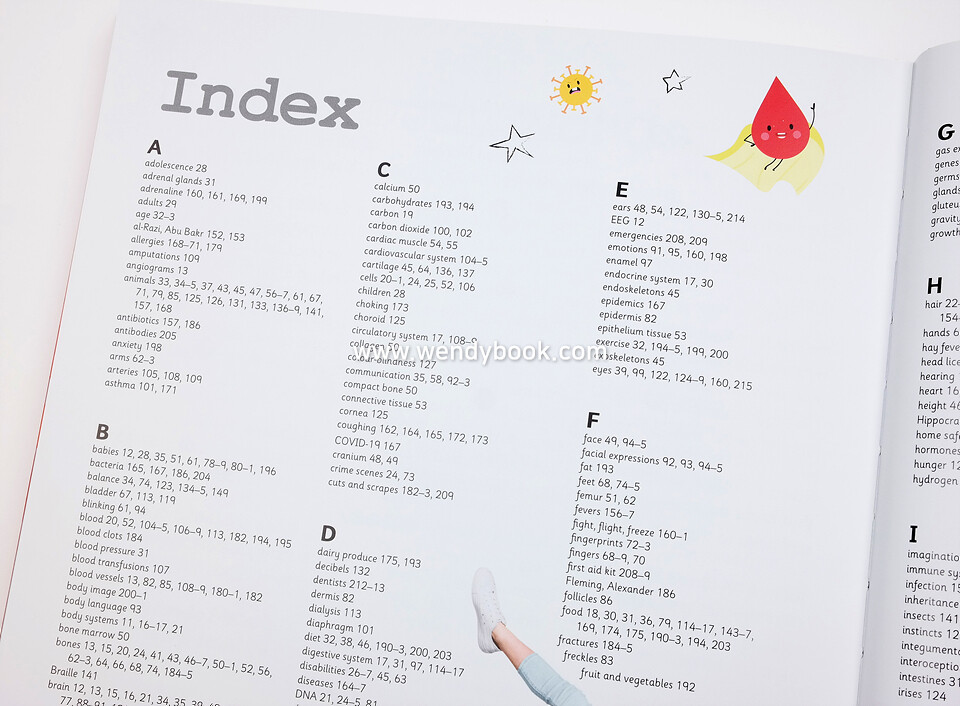 Index
A
adolescence 28
adrenal glands 31
adrenaline 160, 161, 169, 199
adults 29
age 32–3
al-Razi, Abu Bakr 152, 153
allergies 168–71, 179
amputations 109
angiograms 13
animals 33, 34–5, 37, 43, 45, 47, 56–7, 61, 67,
71, 79, 85, 125, 126, 131, 133, 136–9, 141,
157, 168
antibiotics 157, 186
antibodies 205
anxiety 198
arms 62–3
arteries 105, 108, 109
asthma 101, 171
B
babies 12, 28, 35, 51, 61, 78–9, 80–1, 196
bacteria 165, 167, 186, 204
balance 34, 74, 123, 134–5, 149
bladder 67, 113, 119
blinking 61, 94
blood 20, 52, 104–5, 106–9, 113, 182, 194, 195
blood clots 184
blood pressure 31
blood transfusions 107
blood vessels 13, 82, 85, 108–9, 180–1, 182
body image 200–1
body language 93
body systems 11, 16–17, 21
bone marrow 50
bones 13, 15, 20, 24, 41, 43, 46–7, 50–1, 52, 56,
62–3, 64, 66, 68, 74, 184–5
Braille 141
brain 12, 13, 15, 16, 21, 34, 35, 39, 45,
C
calcium 50
carbohydrates 193, 194
carbon 19
carbon dioxide 100, 102
cardiac muscle 54, 55
cardiovascular system 104–5
cartilage 45, 64, 136, 137
cells 20–1, 24, 25, 52, 106
children 28
choking 173
choroid 125
circulatory system 17, 108–9
collagen 50
colour-blindness 127
communication 35, 58, 92–3
compact bone 50
connective tissue 53
cornea 125
coughing 162, 164, 165, 172, 173
COVID-19 167
cranium 48, 49
crime scenes 24, 73
cuts and scrapes 182–3, 209
D
dairy produce 175, 193
decibels 132
dentists 212–13
dermis 82
dialysis 113
diaphragm 101
diet 32, 38, 46, 190–3, 200, 203
digestive system 17, 31, 97, 114–17
disabilities 26–7, 45, 63
diseases 164–7
DNA 21, 24–5, 81
E
ears 48, 54, 122, 130–5, 214
EEG 12
emergencies 208, 209
emotions 91, 95, 160, 198
enamel 97
endocrine system 17, 30
endoskeletons 45
epidemics 167
epidermis 82
epithelium tissue 53
exercise 32, 194–5, 199, 200
exoskeletons 45
eyes 39, 99, 122, 124–9, 160, 215
F
face 49, 94–5
facial expressions 92, 93, 94–5
fat 193
feet 68, 74–5
femur 51, 62
fevers 156–7
fight, flight, freeze 160–1
fingerprints 72–3
fingers 68–9, 70
first aid kit 208–9
Fleming, Alexander 186
follicles 86
food 18, 30, 31, 36, 79, 114–17, 143–7,
169, 174, 175, 190–3, 194, 203
fractures 184–5
freckles 83
fruit and vegetables 192
G
gas
genes
germs
glands
gravity
growth
H
hair 22–
154–
hands
hay
head lice
hearing
heart
height
home
hormones
hunger
hydrogen
I
immune
infection
inheritance
insects
instincts
intestines
irises 124
www.wendybook.com